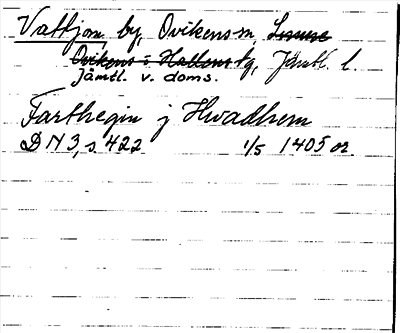 Vattjom by, Ovikens sn,
Ovikens o Hallens tg, Jämtl. l.
Jämtl. v. doms.
Farthegin j Hwadhem
DN 3, s. 422 1/5 1405 or.